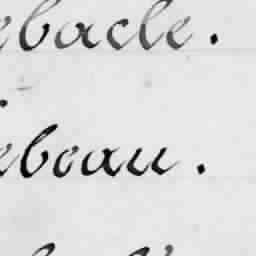 ebacle.
ebeau.